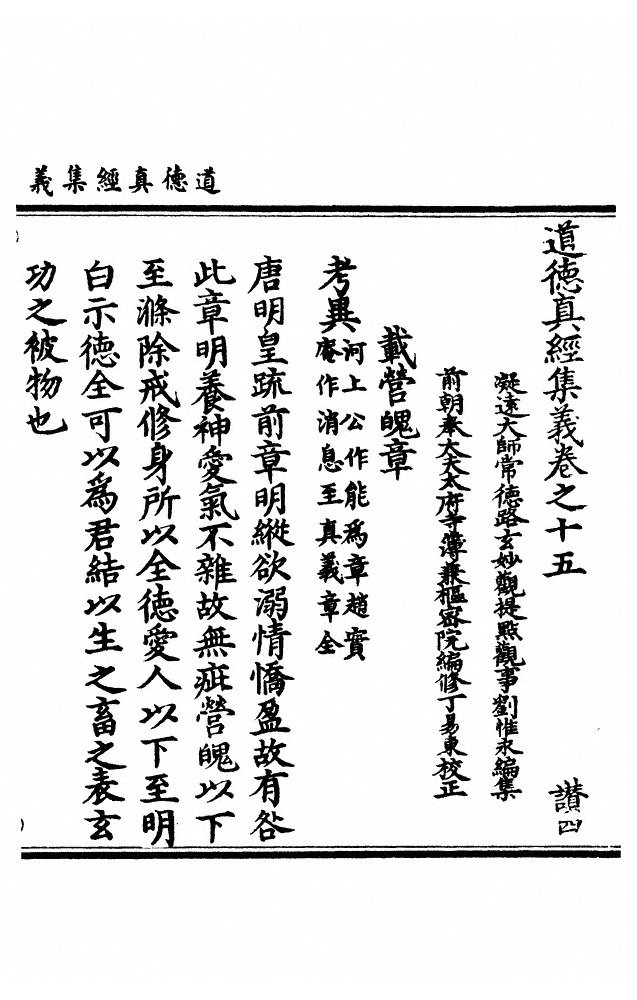 道德真經集義
道德真經集義卷之十五
讃四
凝遠大師常德路玄妙觀提點觀事劉惟永編集
前朝奉大夫太府寺簿兼樞密院編修丁易東校正
載營魄章
考異
河上公作能爲章趙實
庵作消息至真義章全
唐明皇疏前章明縱欲溺情憍盈故有咎
此章明養神愛氣不雜故無疵營魄以下
至滌除戒修身所以全德愛人以下至明
白示德全可以爲君結以生之畜之表玄
功之被物也